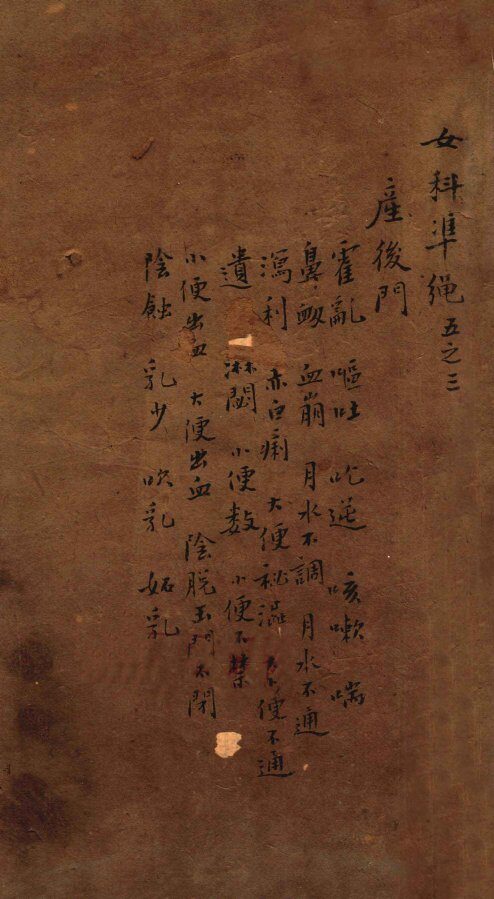 女科準繩五之三
産後門
霍亂 嘔吐 吃逆 咳嗽 喘
鼻衂 血崩 月水不調 月水不通
瀉利 赤白痢 大便秘澁 便不通
遺 淋閟 小便数 小便不禁
小便出血 大便出血 陰脱玉門不閉
陰蝕 乳少 吹乳 妬乳